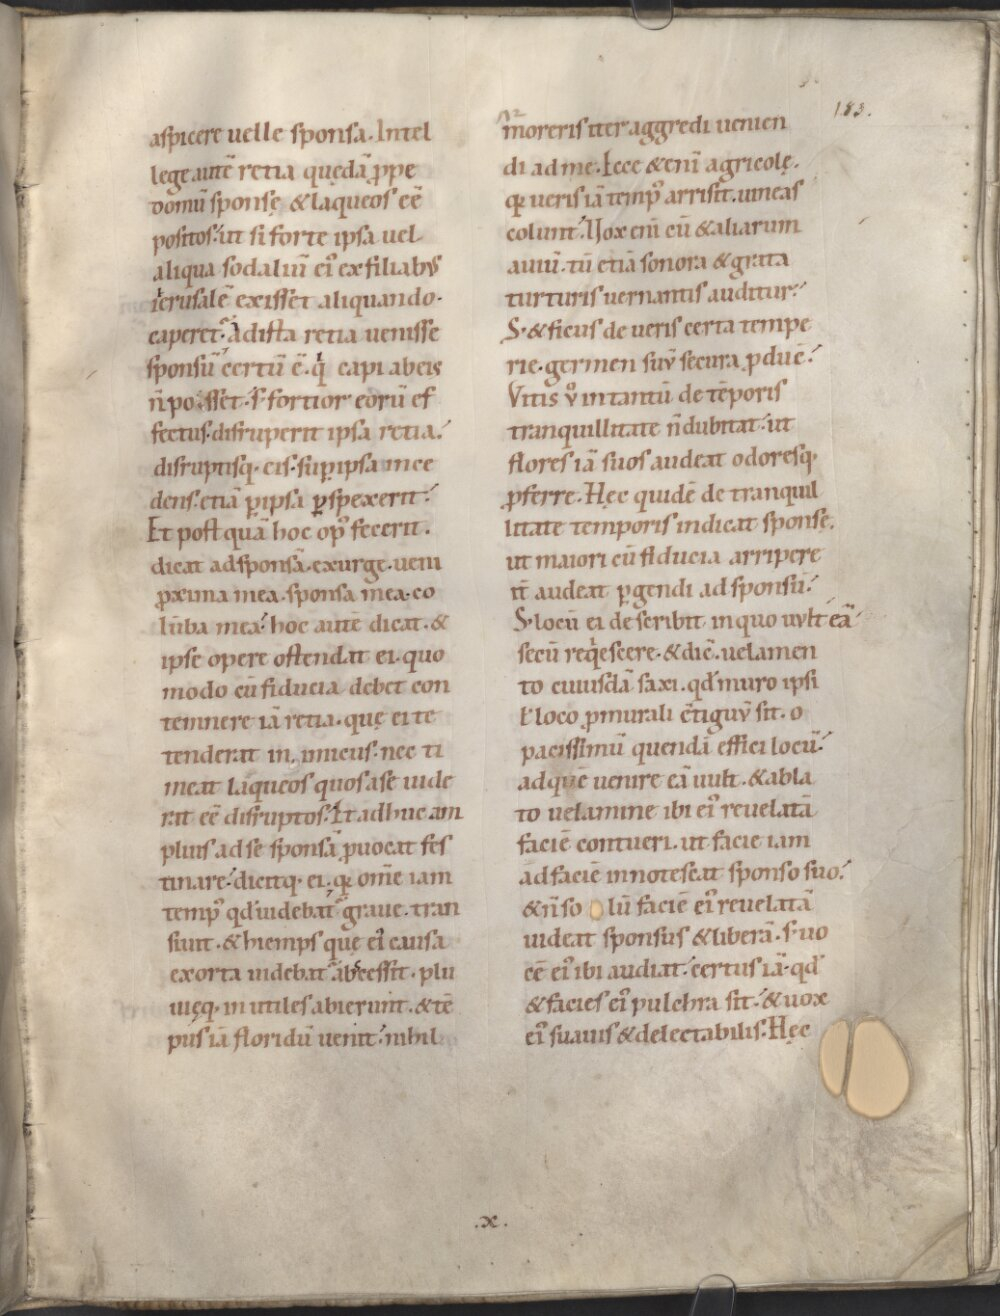 183.
aspicere uelle sponsa. Intel
lege autē retia quędā ꝓpe
domū sponsę & laqueos eē
positos. ut si forte ipsa uel
aliqua sodaliū eiꝰ ex filiabꝰ
ierusalē exissēt aliquando.
caperet᷑. Ad ista retia uenisse
sponsū certū ē. qͥ capi ab eis
n̄ posset. s; fortior eorū ef
fectus. disruperit ipsa retia.
disruptisq; eis. suꝑ ipsa ince
dens. etiā ꝑ ipsa ꝑspexerit.
Et post quā hoc opꝰ fecerit.
dicat ad sponsā. exurge. ueni
ꝓxima mea. sponsa mea. co
lūba mea. hoc autē dicat. &
ipse opere ostendat ei. quo
modo cū fiducia debet con
temnere iā retia. quę ei te
tenderat inimicus. nec ti
meat laqueos quos a se uide
rat eē disruptos. Et adhuc am
plius ad se sponsā ꝓuocat fes
tinare. dicitq; ei. qꝛ om̄e iam
tempꝰ qđ uidebat᷑ graue. tran
siuit. & hiemps que ei causa
exorta uidebat᷑ abcessit. plu
uięq; inutiles abierunt. & tē
pus iā floridū uenit. nihil
moreris iter aggredi uenien
di ad me. Ecce & eni agricolę.
qꝛ ueris iā tempꝰ arrisit. uineas
colunt. Uox eni cū & aliarum
auiū. tū etiā sonora & grata
turturis uernantis auditur.
S; & ficus de ueris certa tempe
rie. germen suū secura ꝓducē.
Vitis ů in tantū de tēporis
tranquillitate n̄ dubitat. ut
flores iā suos audeat odoresq;
ꝓferre. Hęc quidē de tranquil
litate temporis indicat sponsę.
ut maiori cū fiducia arripere
it᷑ audeat ꝑgendi ad sponsū.
S; locū ei describit in quo uult eā
secū reqͥescere. & dič. uelamen
to cuiusdā saxi. qđ muro ipsi
ł loco ꝓmurali c̄tiguū sit. o
pacissimū quendā effici locū.
ad quē uenire eā uult. & abla
to uelamine ibi eiꝰ reuelatā
faciē contueri. ut facie iam
ad faciē innotescat sponso suo.
& n̄ so lū faciē eiꝰ reuelatā
uideat sponsus & liberā. s; uo
cē eiꝰ ibi audiat. certus iā. qđ
& facies eiꝰ pulchra sit. & uox
eiꝰ suauis & delectabilis. Hęc
.x.